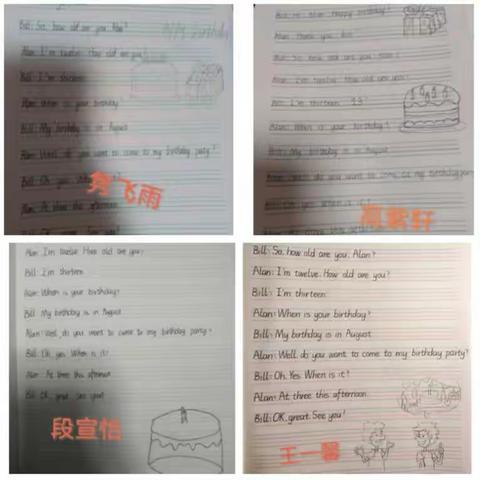 Bill: So, how old are you, Alan?
Alan: I'm twelve. How old are you?
Bill: I'm thirteen.
Alan: When is your birthday?
Bill: My birthday is in August.
Alan: Well, do you want to come to my birthday party?
Bill: Oh, yes. When is it?
Alan: At three this afternoon.
飞雨
Bill: Hi, Alan. Happy birthday!
Alan: Thank you, Bill.
Bill: So, how old are you, Alan?
Alan: I'm twelve. How old are you?
Bill: I'm thirteen.
Alan: When is your birthday?
Bill: My birthday is in August.
Alan: Well, do you want to come to my birthday party
Bill: Oh, yes. When is it?
轩
Alan: I'm twelve. How old are you?
Bill: I'm thirteen.
Alan: When is your birthday?
Bill: My birthday is in August.
Alan: Well, do you want to come to my birthday party?
Bill: Oh, yes. When is it?
Alan: At three this afternoon.
Bill: OK, great. See you!
段宣怡
Bill: So, how old are you, Alan?
Alan: I'm twelve. How old are you?
Bill: I'm thirteen.
Alan: When is your birthday?
Bill: My birthday is in August.
Alan: Well, do you want to come to my birthday party?
Bill: Oh, Yes. When is it?
Alan: At three this afternoon.
Bill: OK, great. See you!
王一馨